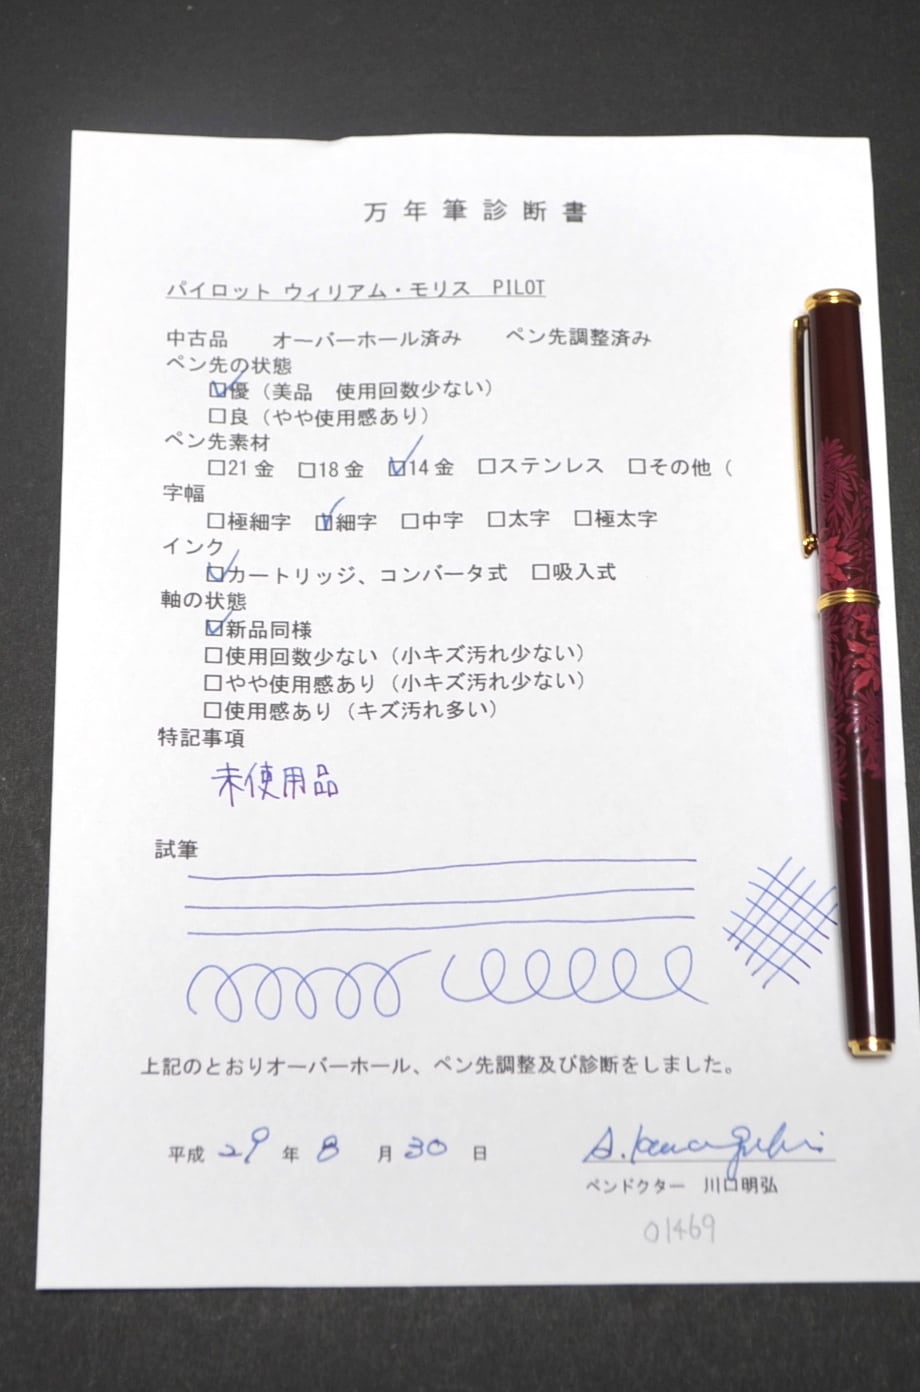 万年筆診断書
パイロット ウィリアム・モリス PILOT
中古品 オーバーホール済み ペン先調整済み
ペン先の状態
☑優（美品 使用回数少ない）
□良（やや使用感あり）
ペン先素材
□21金 □18金 ☑14金 □ステンレス □その他（
字幅
□極細字 ☑細字 □中字 □太字 □極太字
インク
☑カートリッジ、コンバータ式 □吸入式
軸の状態
☑新品同様
□使用回数少ない（小キズ汚れ少ない）
□やや使用感あり（小キズ汚れ少ない）
□使用感あり（キズ汚れ多い）
特記事項
未使用品
試筆
上記のとおりオーバーホール、ペン先調整及び診断をしました。
平成 29 年 8 月 30 日
A. Kawaguchi
ペンドクター 川口明弘
01469